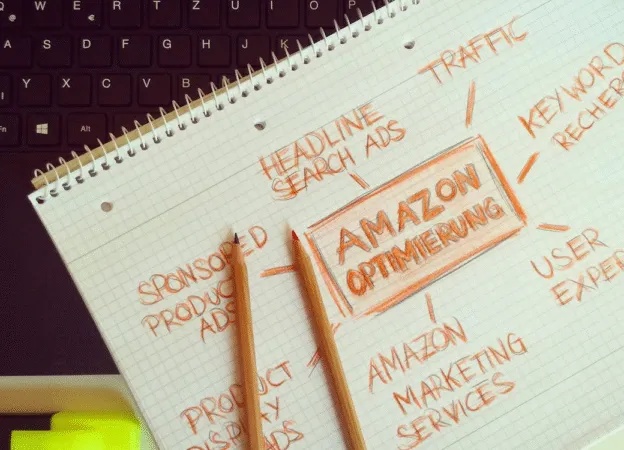 Q W E R T Z U I O P
@ €
A S D F G H J K
Y X C V B
Fn Alt
TRAFFIC
KEYWORD
RECHER
HEADLINE
SEARCH ADS
AMAZON
OPTIMIERUNG
SPONSORED
PRODUCT
ADS
USER
EXPER
AMAZON
MARKETING
SERVICES
PRODUCT
DISPLAY
ADS